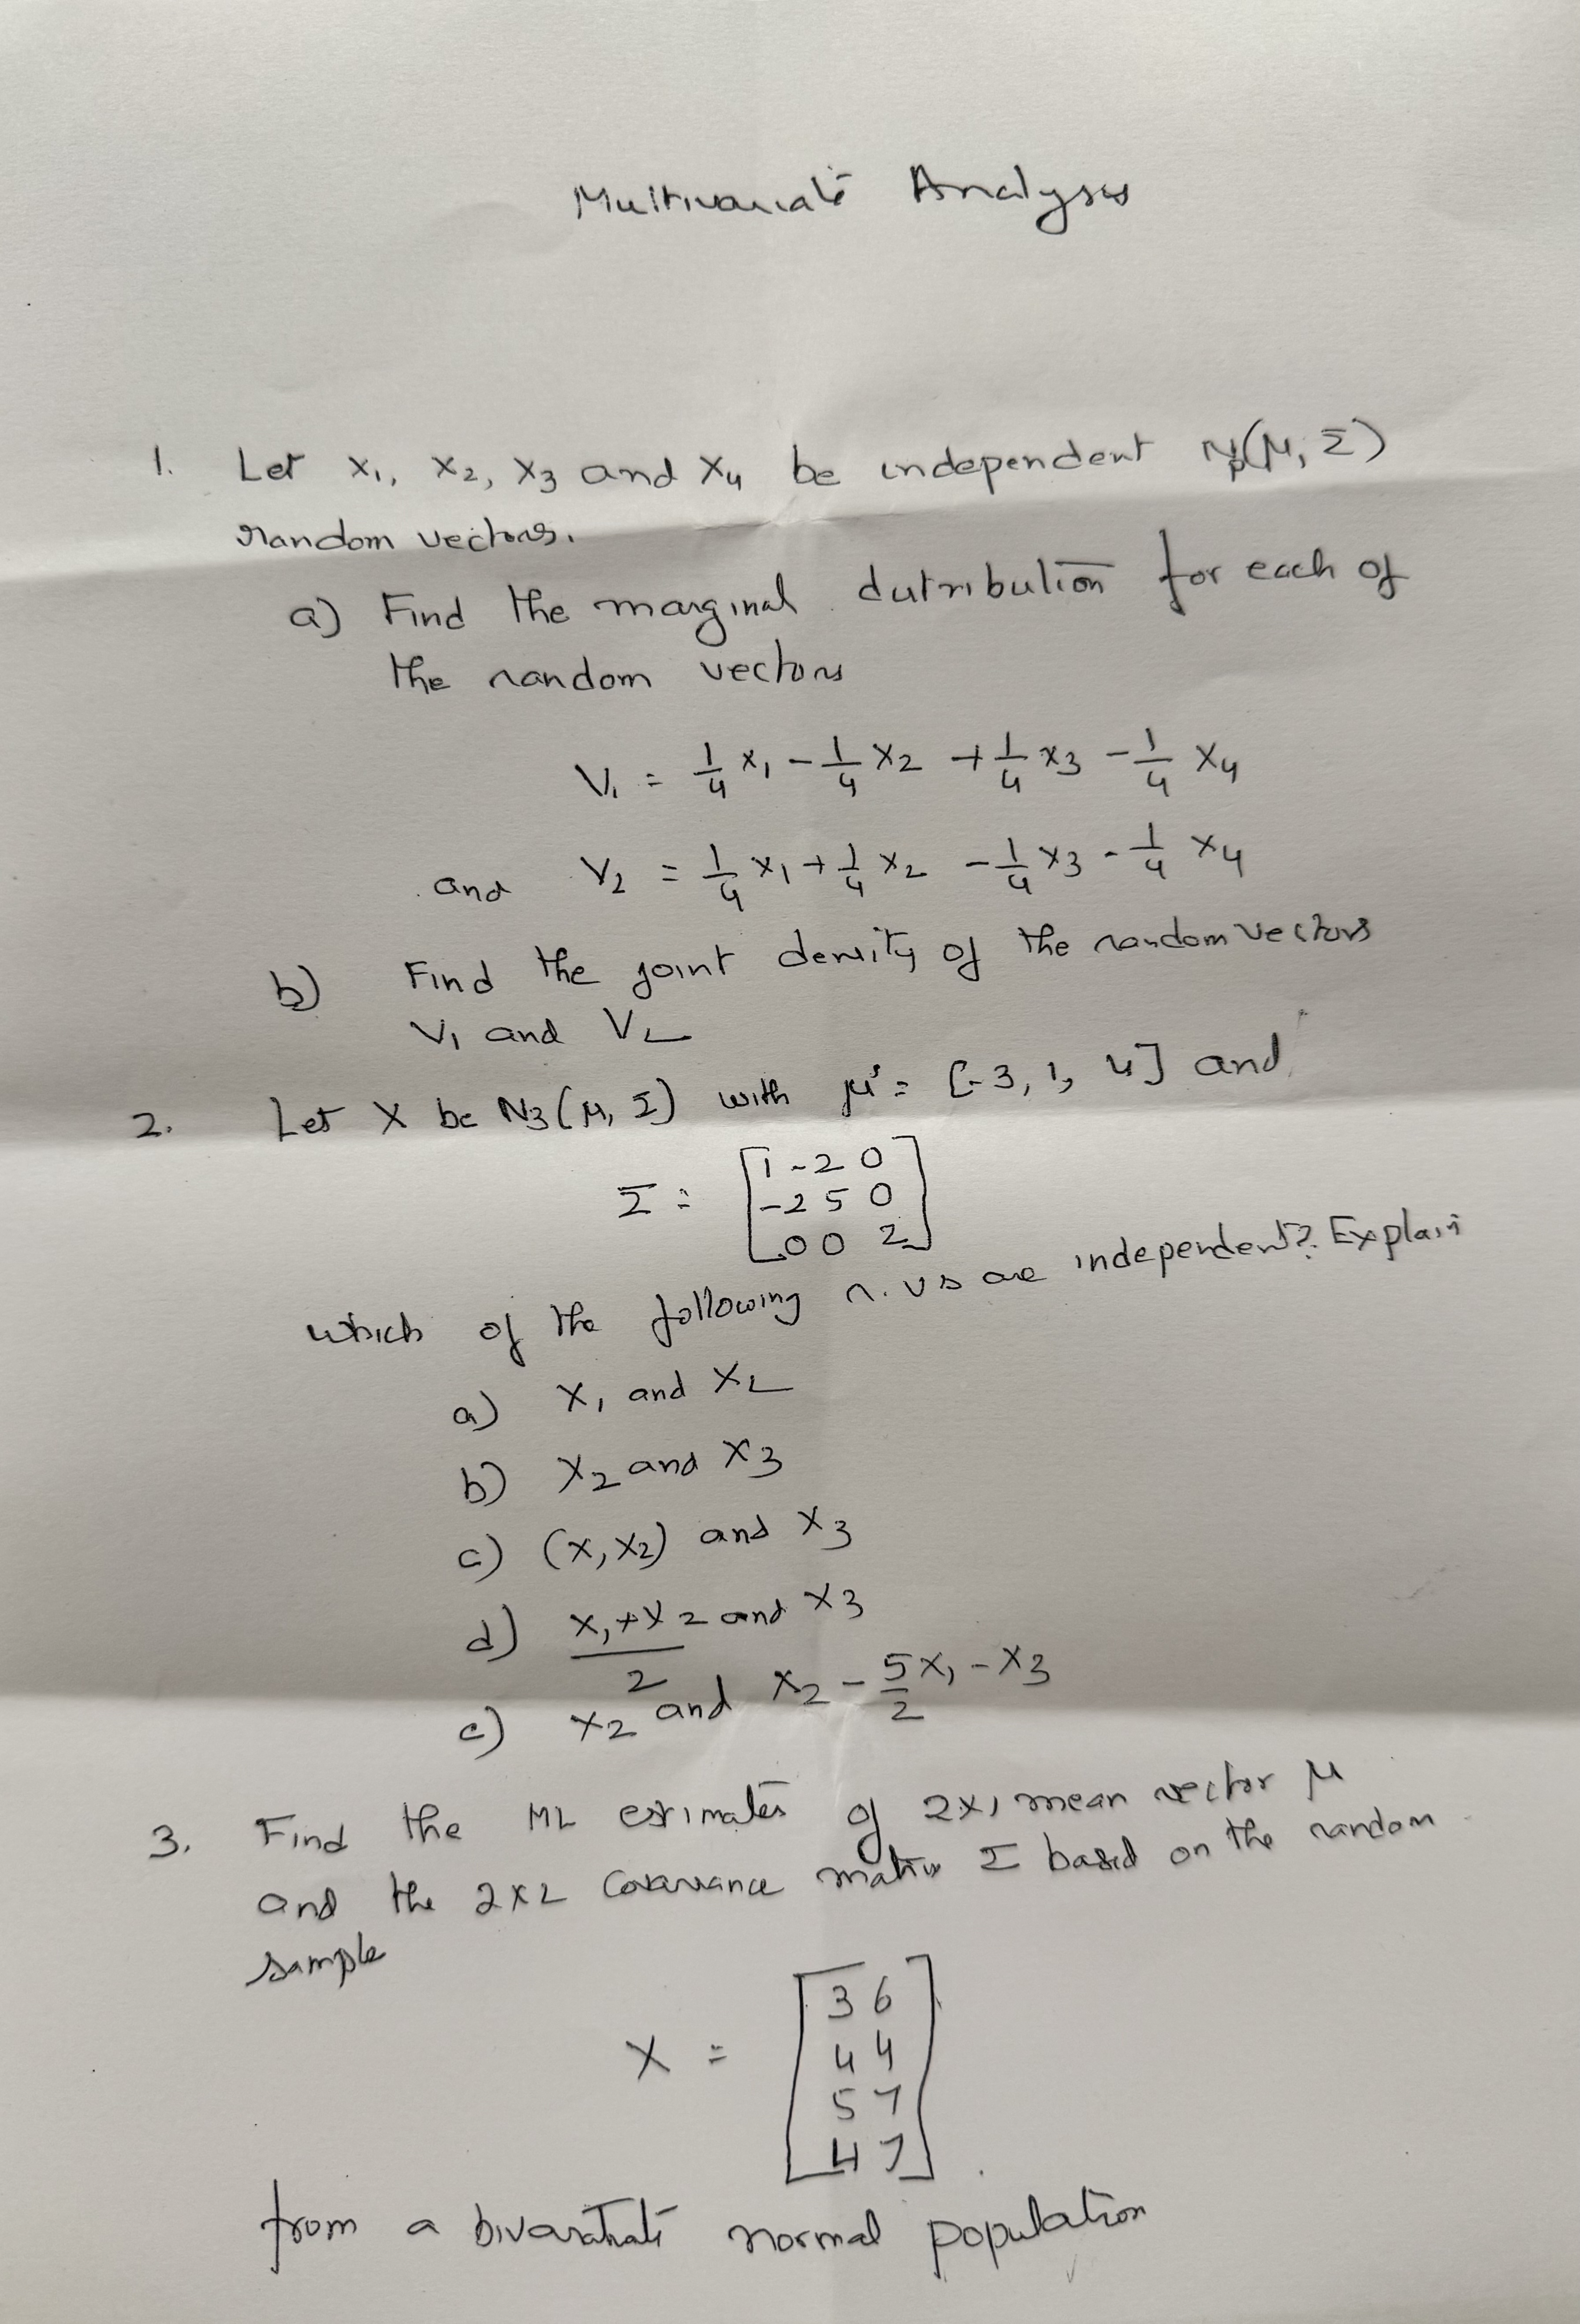 Multivariate Analysis
1. Let X₁, X₂, X₃ and X₄ be independent Nₚ(μ, Σ)
random vectors.
a) Find the marginal distribution for each of
the random vectors
V₁ = 1/4 X₁ - 1/4 X₂ + 1/4 X₃ - 1/4 X₄
and V₂ = 1/4 X₁ + 1/4 X₂ - 1/4 X₃ - 1/4 X₄
b) Find the joint density of the random vectors
V₁ and V₂
2. Let X be N₃(μ, Σ) with μ' = [-3, 1, 4] and
Σ = [1 -2 0
-2 5 0
0 0 2]
which of the following r.vs are independent? Explain
a) X₁ and X₂
b) X₂ and X₃
c) (X₁ X₂) and X₃
d) (X₁ + X₂)/2 and X₃
e) X₂ and X₂ - 5/2 X₁ - X₃
3. Find the ML estimates of 2x1 mean vector μ
and the 2x2 Covariance matrix Σ based on the random
sample
X = [3 6
4 4
5 7
4 7].
from a bivariate normal population